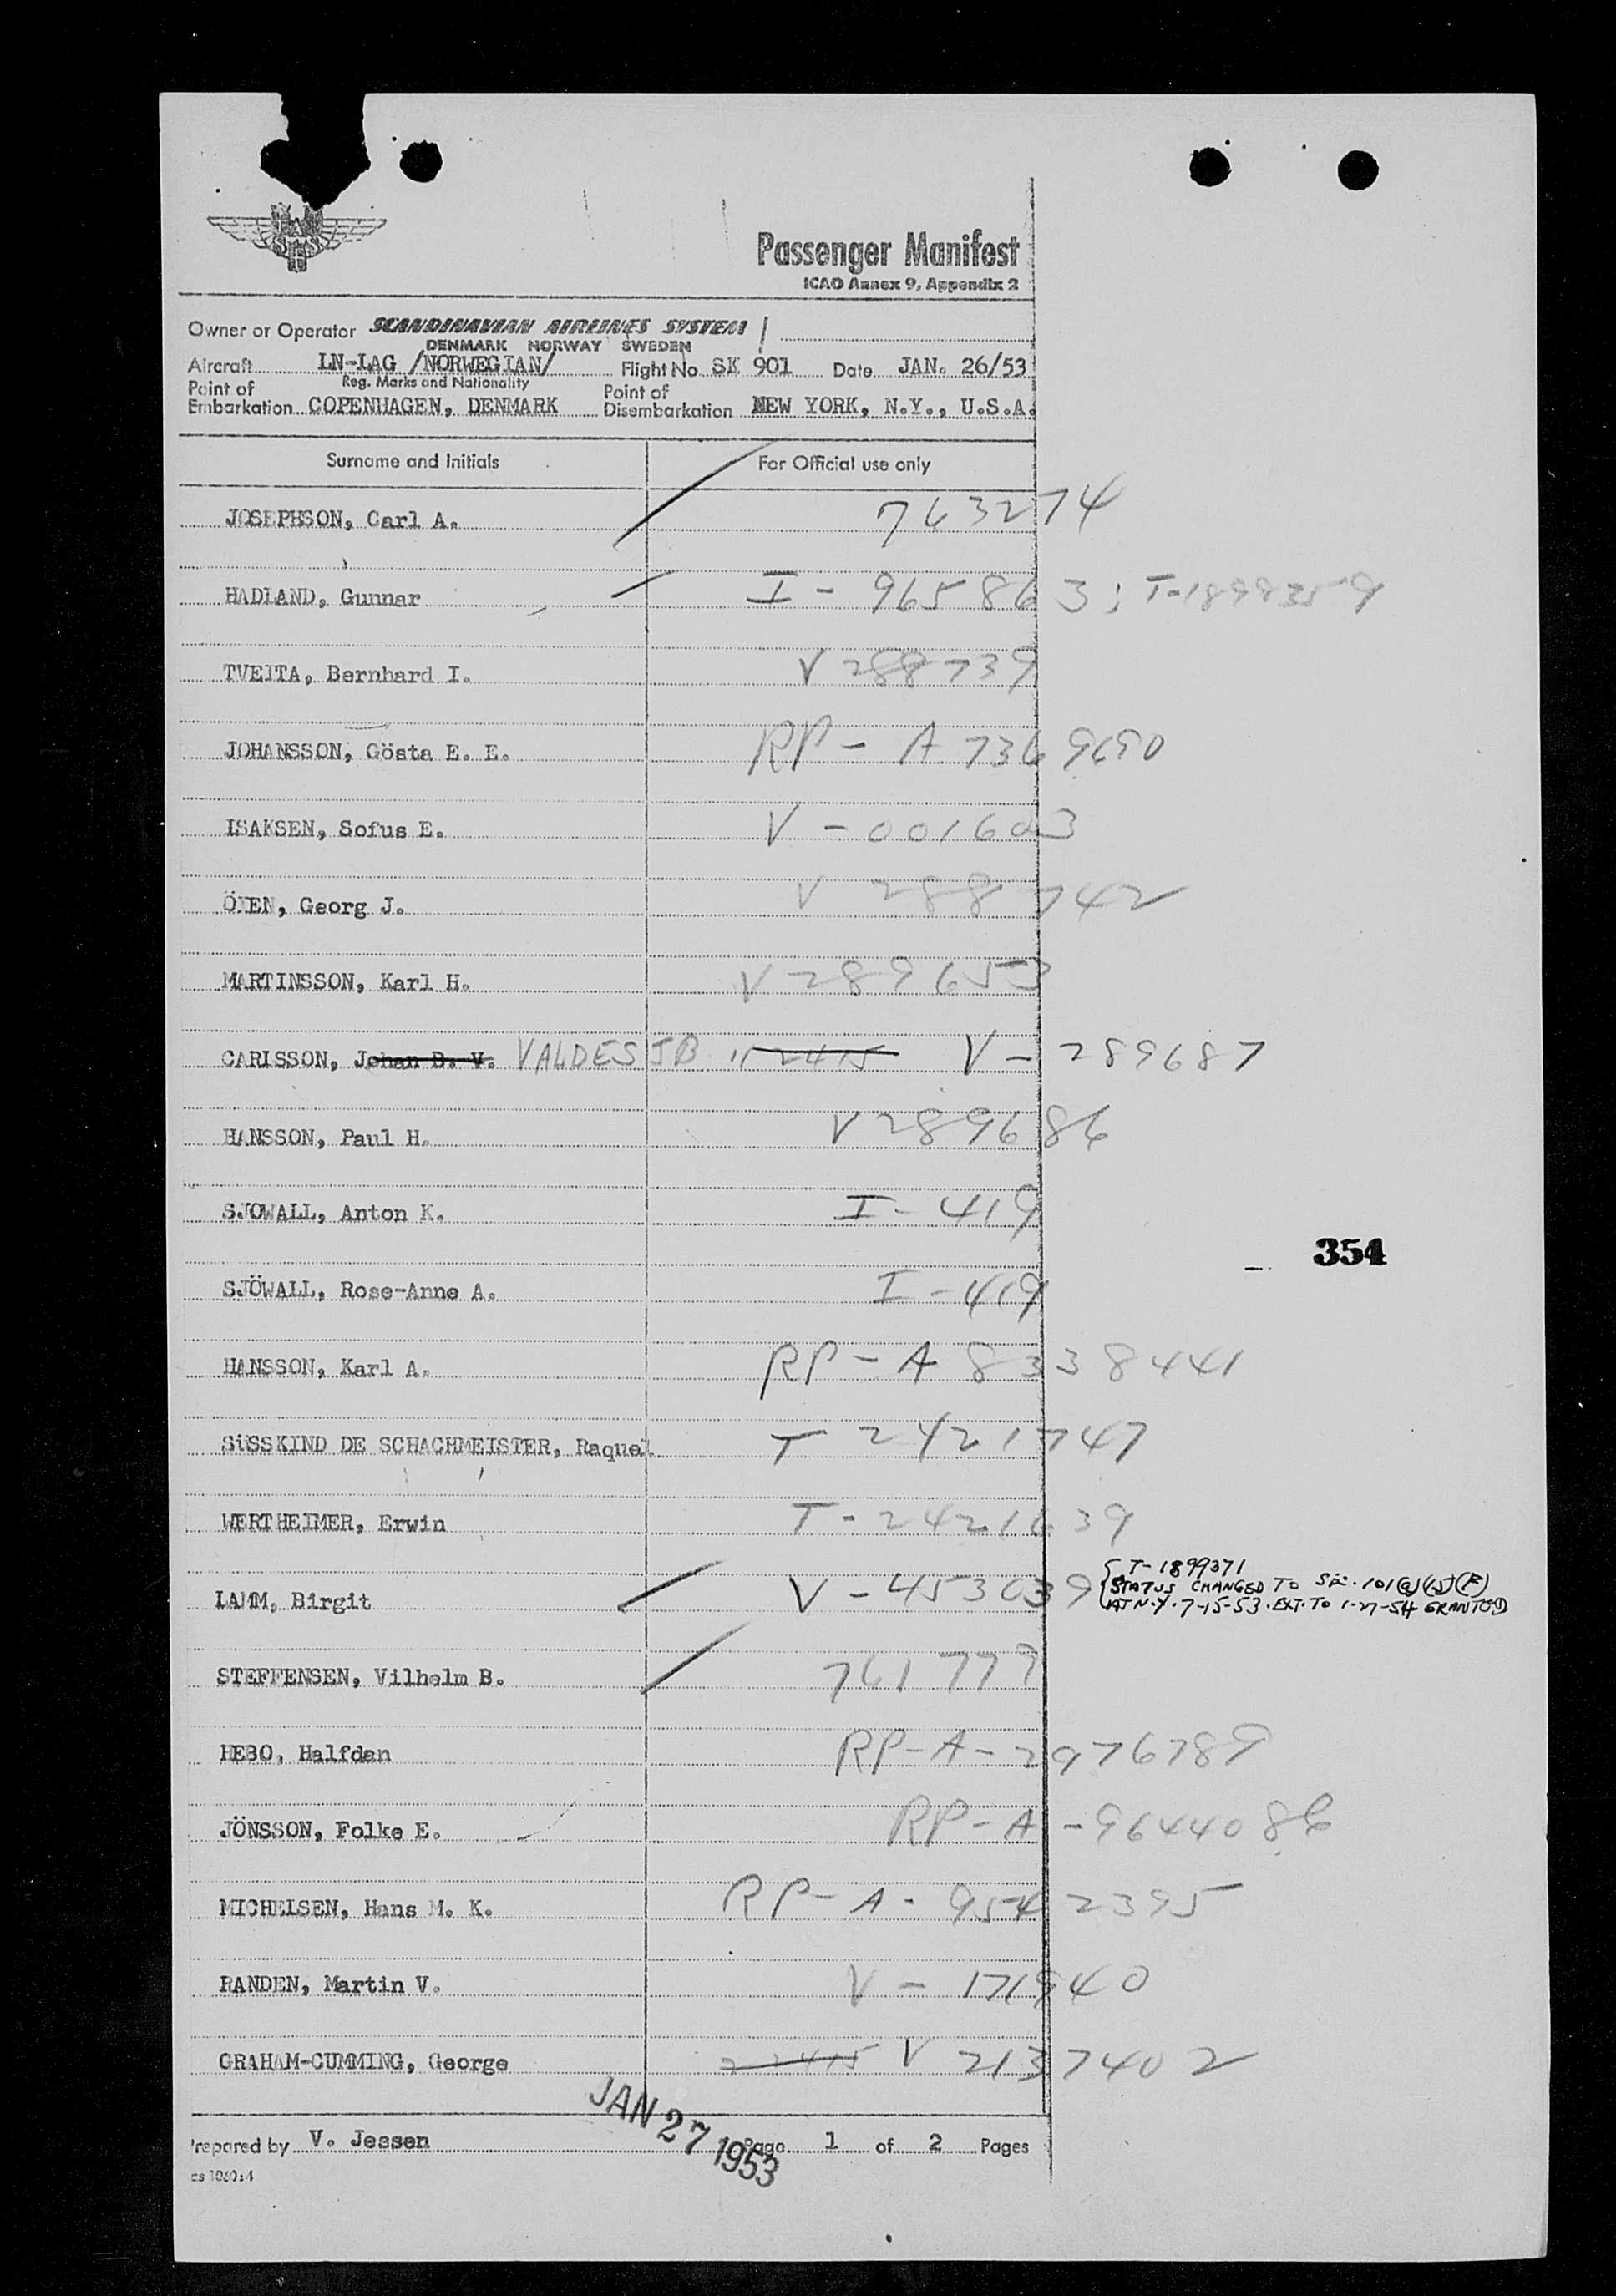 SAS
Passenger Manifest
ICAO Annex 9, Appendix 2
Owner or Operator SCANDINAVIAN AIRLINES SYSTEM
DENMARK NORWAY SWEDEN
Aircraft LN-LAG /NORWEGIAN/ Flight No SK 901 Date JAN. 26/53
Reg. Marks and Nationality
Point of Embarkation COPENHAGEN, DENMARK Point of Disembarkation NEW YORK, N.Y., U.S.A.
Surname and Initials For Official use only
JOSEPHSON, Carl A. 763274
HADLAND, Gunnar I - 965863; T-1899359
TVEITA, Bernhard I. V 288739
JOHANSSON, Gösta E. E. RP - A 7369690
ISAKSEN, Sofus E. V - 001603
ÖIEN, Georg J. V 288742
MARTINSSON, Karl H. V 289653
CARLSSON, Johan B. V. VALDES JB V - 289687
HANSSON, Paul H. V 289686
SJOWALL, Anton K. I - 419
354
SJÖWALL, Rose-Anne A. I - 419
HANSSON, Karl A. RP - A 8338441
SÜSSKIND DE SCHACHMEISTER, Raquel T 2421747
WERTHEIMER, Erwin T - 2421639
LAMM, Birgit V - 453039 T-1899371
STATUS CHANGED TO SEC. 101(a)(15)(F)
AT N.Y. 7-15-53. EXT. TO 1-27-54 GRANTED
STEFFENSEN, Vilhelm B. 761777
HEBO, Halfdan RP-A-2976789
JÖNSSON, Folke E. RP-A-9644086
MICHELSEN, Hans M. K. RP-A-9542395
RANDEN, Martin V. V - 171940
GRAHAM-CUMMING, George 22415 V 2137402
JAN 27 1953
Prepared by V. Jessen Page 1 of 2 Pages